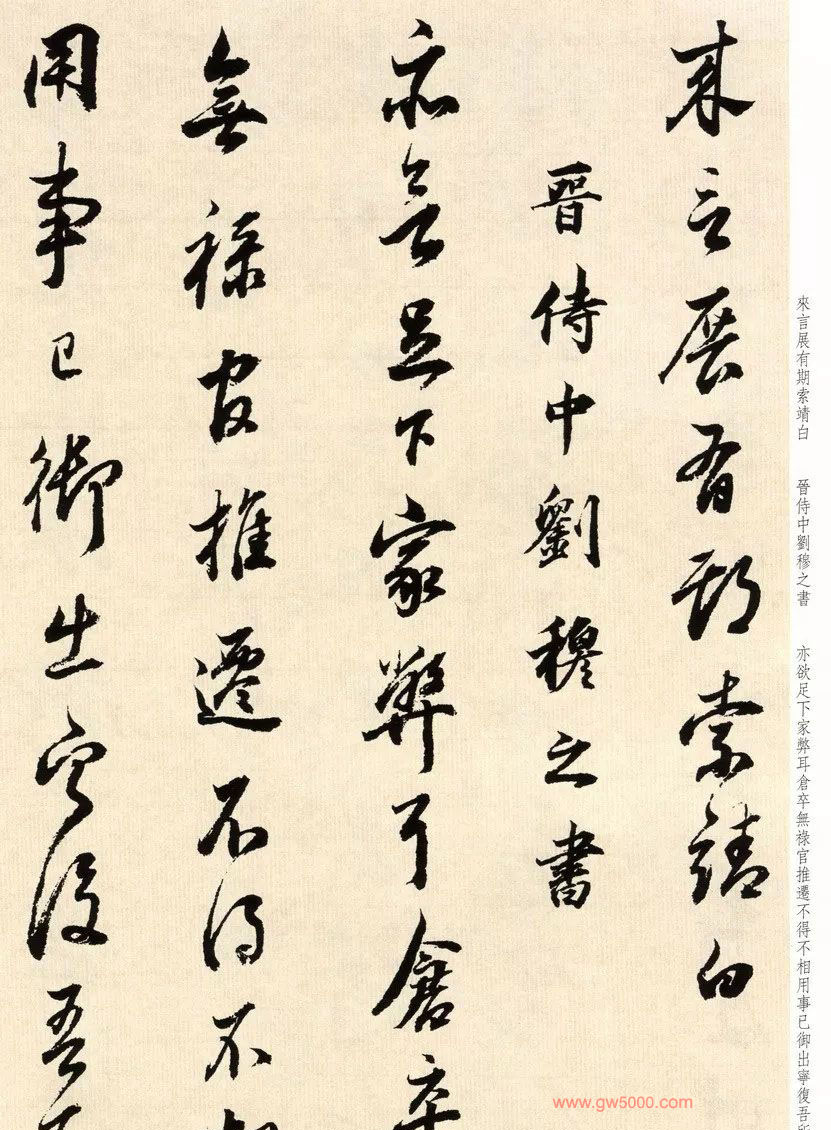 來言展有期索靖白
晉侍中劉穆之書
亦欲足下家弊耳倉卒
無祿官推遷不得不
用事已御出寧復吾
來言展有期索靖白 晉侍中劉穆之書 亦欲足下家弊耳倉卒無祿官推遷不得不相用事已御出寧復吾所
www.gw5000.com